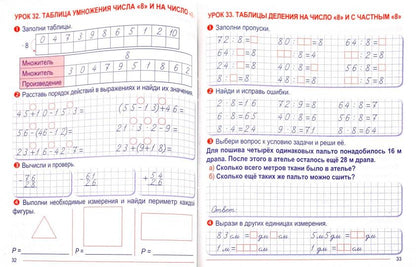 УРОК 32. ТАБЛИЦА УМНОЖЕНИЯ ЧИСЛА «8» И НА ЧИСЛО
1 Заполни таблицы.
0 4 7 3 8 9 5 1 6 2 10
· 8
Множитель 3 0 4 7 5 8 9 1 6 2
Множитель 8
Произведение
2 Расставь порядок действий в выражениях и найди их значения.
45+10-15·3= (55-15)+46=
56-(46-12)= 21·3-2·9=
23+16-42:7= 23+(9+18)=
3 Вычисли и проверь.
-76 -61 +54
28 26 26
4 Выполни необходимые измерения и найди периметр каждой фигуры.
P = P = P =
32
УРОК 33. ТАБЛИЦЫ ДЕЛЕНИЯ НА ЧИСЛО «8» И С ЧАСТНЫМ «8»
1 Заполни пропуски.
72:8= 80: =8 64:8=
64: =8 :2=8 :4=8
24:8= 40: =8 56:8=
8: =8 :6=8 :8=8
2 Найди и исправь ошибки.
2·8=16 32:8=6 64:8=7
6·8=56 16:8=2 64:8=8
8·4=24 9·8=71 8·8=64
3 Выбери вопрос к условию задачи и реши её.
Для пошива четырёх одинаковых пальто понадобилось 16 м
драпа. После этого в ателье осталось ещё 28 м драпа.
а) Сколько всего метров ткани было в ателье?
б) Сколько ещё таких же пальто можно сшить?
Ответ:
4 Вырази в других единицах измерения.
83 см = дм см 5м 5дм = дм
1 м = дм 1 м = см
33